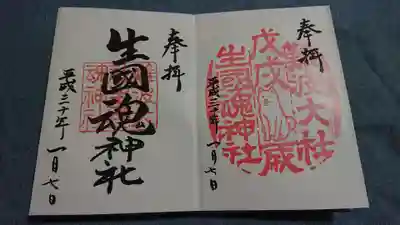 奉拝
戊戌歳
生國魂神社
平成三十年一月七日
奉拝
生國魂神社
平成三十年一月七日